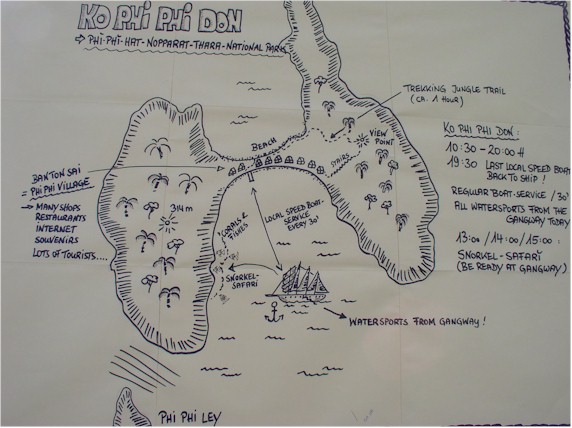 KO PHI PHI DON
⇒ PHI-PHI-HAT-NOPPARAT-THARA-NATIONAL PARK
TREKKING JUNGLE TRAIL
(CA. 1 HOUR)
BEACH
VIEW
POINT
STAIRS
KO PHI PHI DON:
10:30 - 20:00 H
19:30 LAST LOCAL SPEED BOAT
BACK TO SHIP!
REGULAR BOAT-SERVICE / 30'
ALL WATERSPORTS FROM THE
GANGWAY TODAY
13:00 / 14:00 / 15:00:
SNORKEL-SAFARI
(BE READY AT GANGWAY)
BAN TON SAI
= PHI PHI VILLAGE
→ MANY SHOPS
RESTAURANTS
INTERNET
SOUVENIRS
LOTS OF TOURISTS....
314m
CORALS &
FISHES
LOCAL SPEED BOAT-
SERVICE
EVERY 30'
SNORKEL-
SAFARI
WATERSPORTS FROM GANGWAY!
PHI PHI LEY